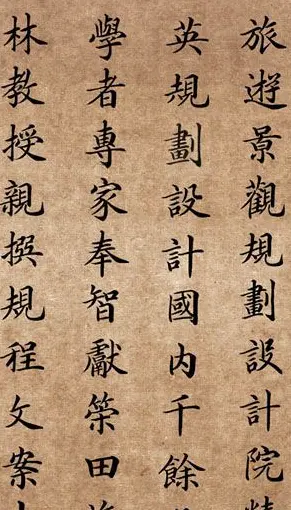 旅遊景觀規劃設計院精
英規劃設計國内千餘
學者專家奉智獻策田
林教授親撰規程文案